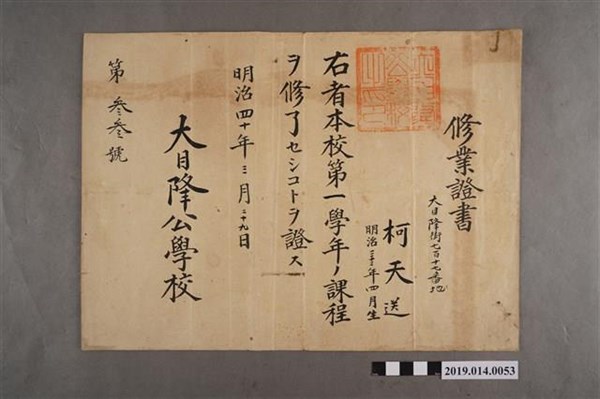 修業證書
大目降街七百十七番地
柯天送
明治三十年四月生
右者本校第一學年ノ課程
ヲ修了セシコトヲ證ス
明治四十年三月二十九日
大目降公學校
第参参號
2019.014.0053